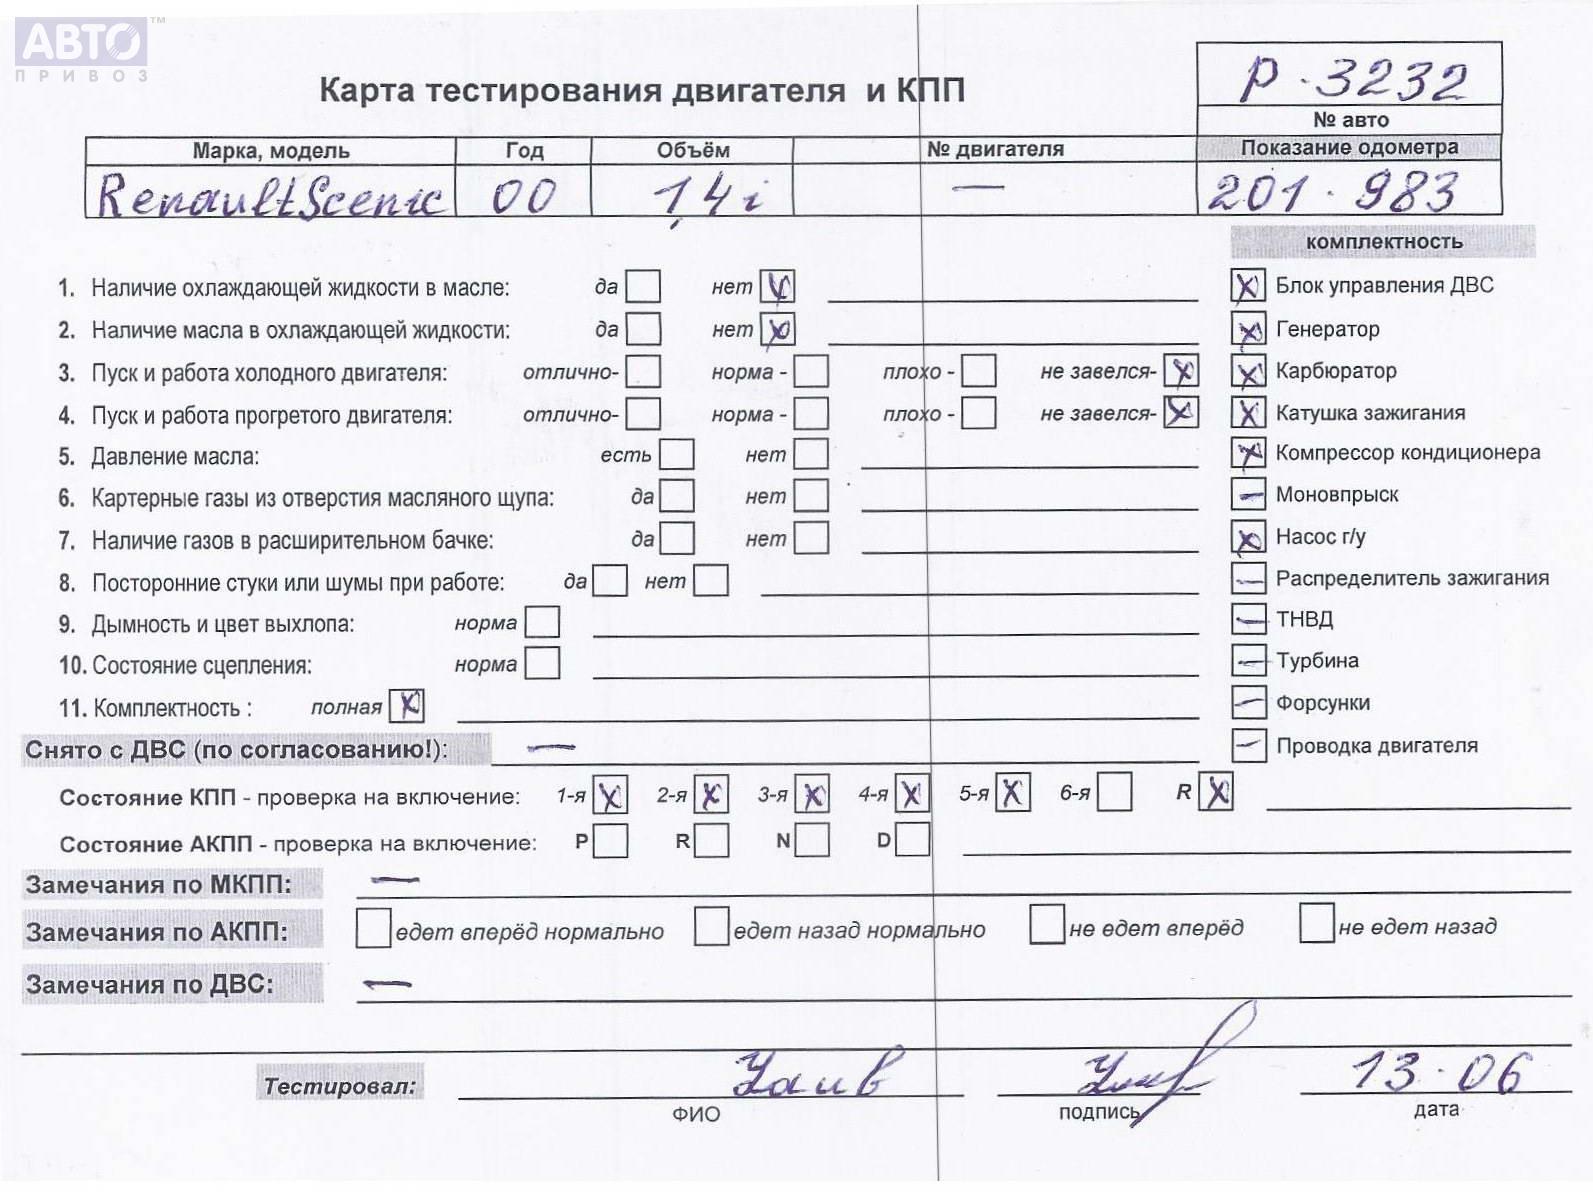 АВТО™
ПРИВОЗ
Карта тестирования двигателя и КПП
Р-3232
№ авто
Марка, модель Год Объём № двигателя Показание одометра
Renault Scenic 00 1,4 i — 201.983
комплектность
1. Наличие охлаждающей жидкости в масле: да нет х Блок управления ДВС
2. Наличие масла в охлаждающей жидкости: да нет х Генератор
3. Пуск и работа холодного двигателя: отлично- норма - плохо - не завелся- х Карбюратор
4. Пуск и работа прогретого двигателя: отлично- норма - плохо - не завелся- х Катушка зажигания
5. Давление масла: есть нет х Компрессор кондиционера
6. Картерные газы из отверстия масляного щупа: да нет — Моновпрыск
7. Наличие газов в расширительном бачке: да нет х Насос г/у
8. Посторонние стуки или шумы при работе: да нет — Распределитель зажигания
9. Дымность и цвет выхлопа: норма — ТНВД
10. Состояние сцепления: норма — Турбина
11. Комплектность : полная х — Форсунки
Снято с ДВС (по согласованию!): — — Проводка двигателя
Состояние КПП - проверка на включение: 1-я х 2-я х 3-я х 4-я х 5-я х 6-я R х
Состояние АКПП - проверка на включение: P R N D
Замечания по МКПП: —
Замечания по АКПП: едет вперёд нормально едет назад нормально не едет вперёд не едет назад
Замечания по ДВС: —
Тестировал: 13.06
ФИО подпись дата